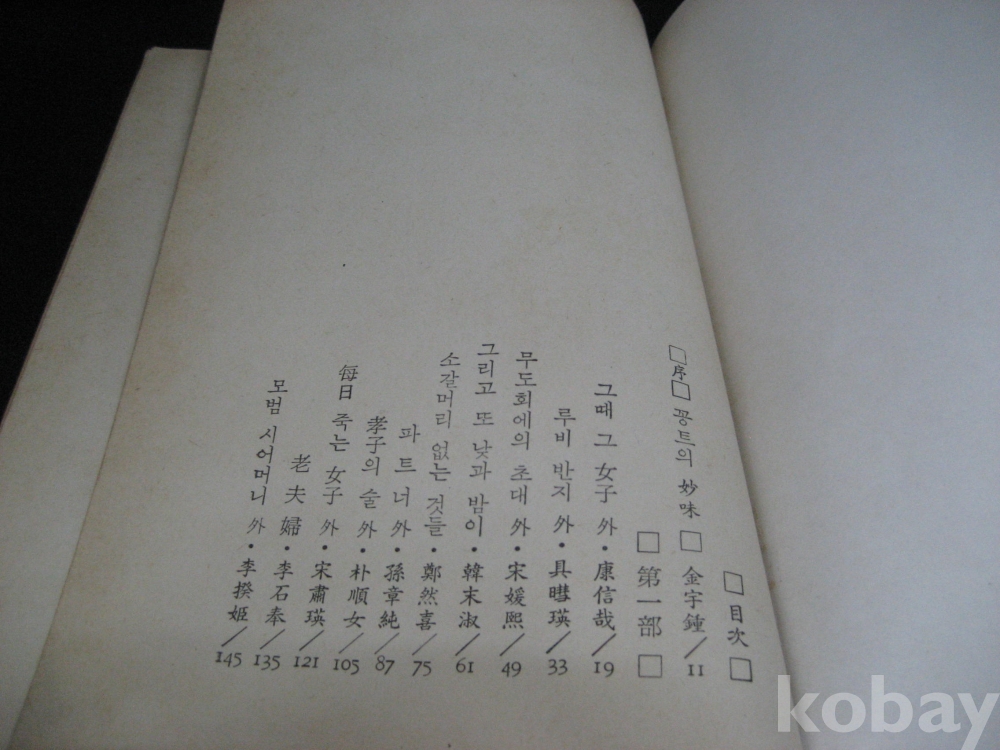 □目次□
□序□ 꽁트의 妙味 □ 金宇鍾／11
□ 第一部 □
그때 그 女子 外・康信哉／19
루비 반지 外・具暳瑛／33
무도회에의 초대 外・宋媛熙／49
그리고 또 낮과 밤이・韓末淑／61
소갈머리 없는 것들・鄭然喜／75
파 트 너 外・孫章純／87
孝子의 술 外・朴順女／105
每日 죽는 女子 外・宋肅瑛／121
老 夫 婦・李石奉／135
모범 시어머니 外・李揆姬／145
kobay